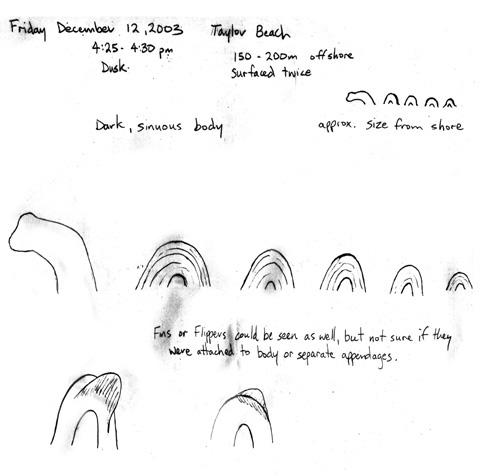 Friday December 12, 2003
Taylor Beach
4:25 - 4:30 pm
Dusk.
150 - 200m offshore
Surfaced twice
Dark, sinuous body
approx. size from shore
Fins or Flippers could be seen as well, but not sure if they
were attached to body or separate appendages.